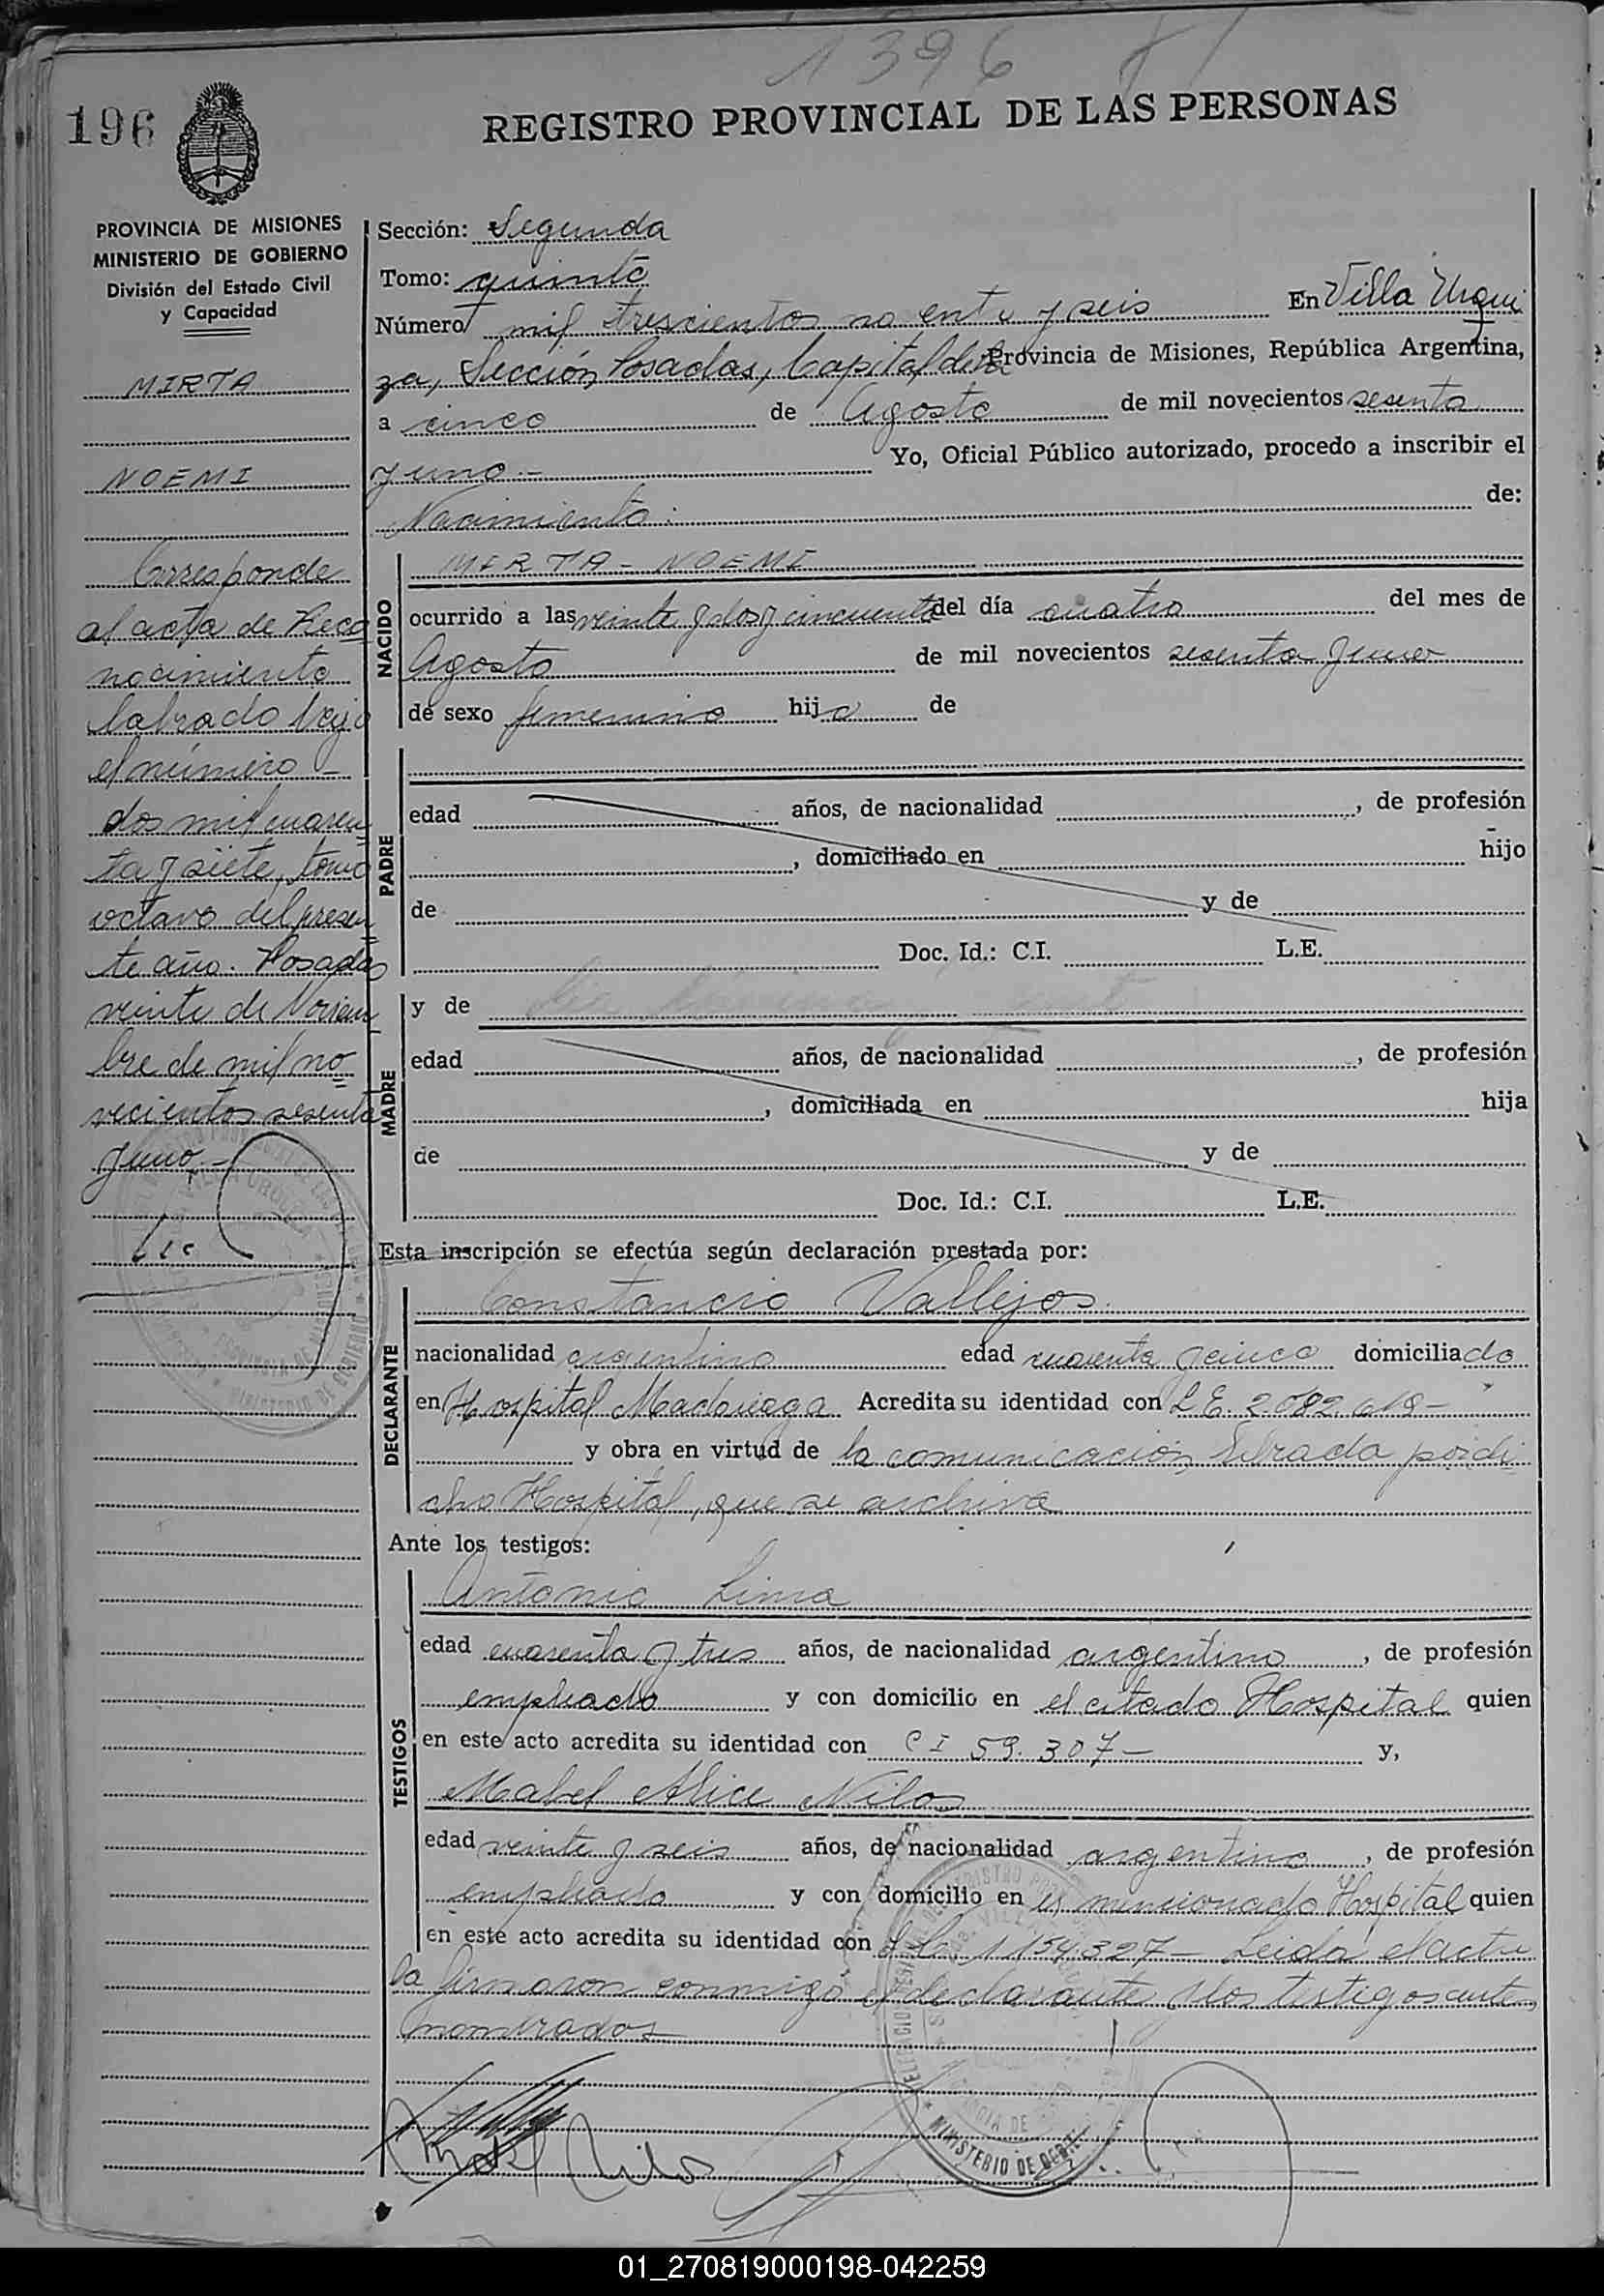 1396
196
REGISTRO PROVINCIAL DE LAS PERSONAS
PROVINCIA DE MISIONES
MINISTERIO DE GOBIERNO
División del Estado Civil
y Capacidad
MIRTA
NOEMI
Corresponde
al acta de Reco
nocimiento
labrado bajo
el número
dos mil cuaren
ta y siete, tomo
octavo del presen
te año. Posadas
veinte de Noviem
bre de mil no
vecientos sesenta
y uno.-
Sección: Segunda
Tomo: quinto
Número mil trescientos noventa y seis En Villa Urqui
za, Sección Posadas, Capital de la Provincia de Misiones, República Argentina,
a cinco de Agosto de mil novecientos sesenta
y uno.- Yo, Oficial Público autorizado, procedo a inscribir el
Nacimiento: de:
NACIDO
MIRTA - NOEMI
ocurrido a las veinte y dos y cincuenta del día cuatro del mes de
Agosto de mil novecientos sesenta y uno
de sexo femenino hija de
PADRE
edad años, de nacionalidad , de profesión
, domiciliado en hijo
de y de
Doc. Id.: C.I. L.E.
MADRE
y de
edad años, de nacionalidad , de profesión
, domiciliada en hija
de y de
Doc. Id.: C.I. L.E.
Esta inscripción se efectúa según declaración prestada por:
DECLARANTE
Constancio Vallejos
nacionalidad argentino edad cuarenta y cinco domiciliado
en Hospital Madariaga Acredita su identidad con L.E. 2.082.619-
y obra en virtud de la comunicación librada por di
cho Hospital, que se archiva
Ante los testigos:
TESTIGOS
Antonio Lima
edad cuarenta y tres años, de nacionalidad argentino, de profesión
empleado y con domicilio en el citado Hospital quien
en este acto acredita su identidad con C I 59.307- y,
Mabel Alice Nilos
edad veinte y seis años, de nacionalidad argentina, de profesión
empleada y con domicilio en el mencionado Hospital quien
en este acto acredita su identidad con 1.154.327- Leida el acta
la firmaron conmigo el declarante y los testigos ante
nombrados
MINISTERIO DE GOBIERNO
01_270819000198-042259